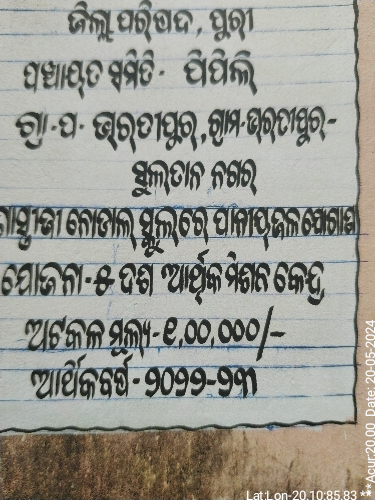 ଜିଲ୍ଲା ପରିଷଦ, ପୁରୀ
ପଞ୍ଚାୟତ ସମିତି- ପିପିଲି
ଗ୍ରା.ପ- ଭରତୀପୁର, ଗ୍ରାମ-ଭରତୀପୁର-
ସୁଲତାନ ନଗର
ନୋଡାଲ ସ୍କୁଲରେ ପାନୀୟଜଳ
ଯୋଜନା-୫ ଦଶ ଆର୍ଥିକ ମିଶନ କେନ୍ଦ୍ର
ଅଟକଳ ମୂଲ୍ୟ-୧,୦୦,୦୦୦/-
ଆର୍ଥିକବର୍ଷ-୨୦୨୨-୨୩
Lat:Lon-20.10:85.83 ***Acur:20.00 Date: 20-05-2024